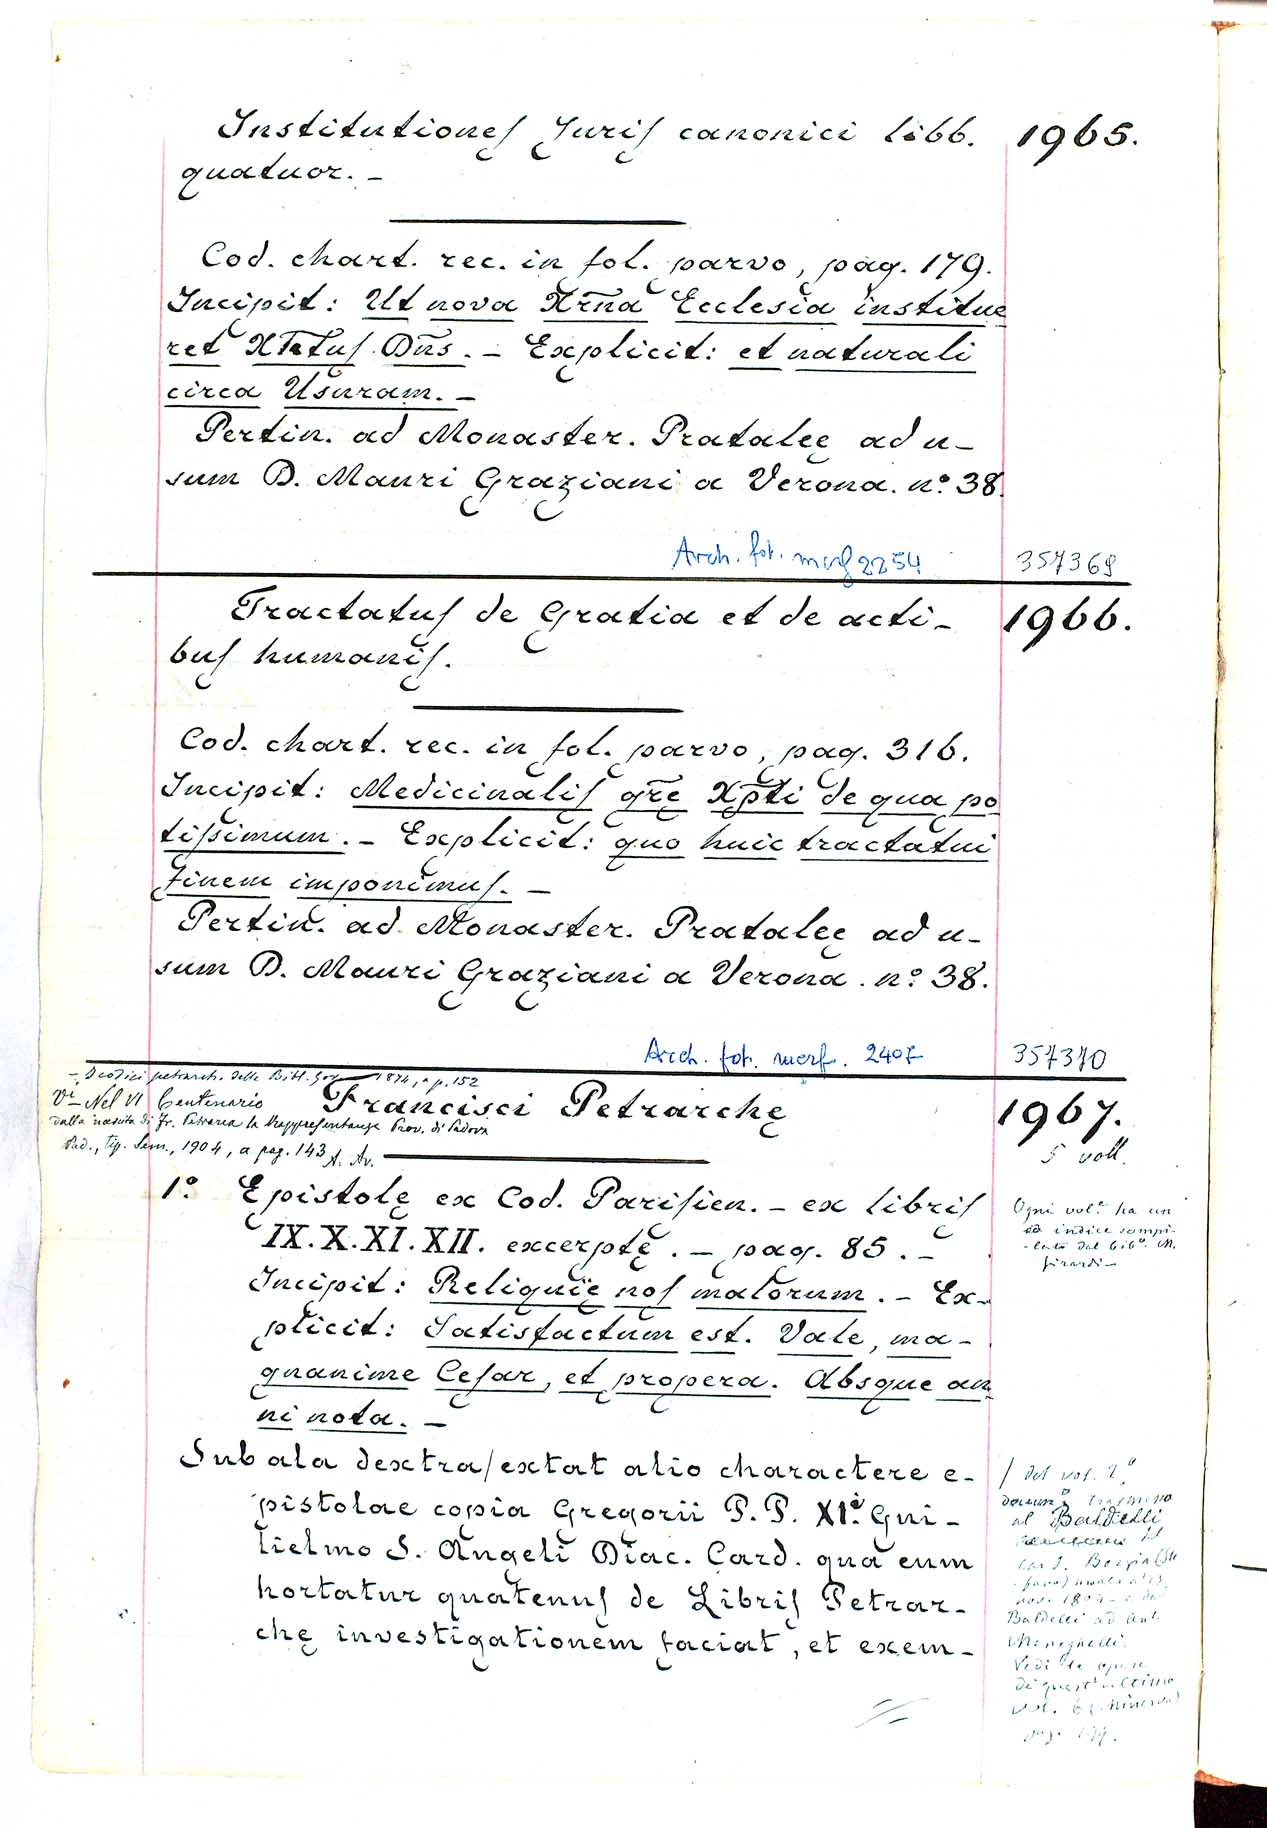 Institutiones Juris canonici libb. 1965.
quatuor. –
Cod. chart. rec. in fol. parvo, pag. 179.
Incipit: Ut nova Xrña Ecclesia institue
ret Dñs. – Explicit: et naturali
circa Usuram. –
Pertin. ad Monaster. Pratalee ad u–
sum D. Mauri Graziani a Verona. n.º 38.
Arch. fot. morf 2254 357369
Tractatus de Gratia et de acti– 1966.
bus humanis.
Cod. chart. rec. in fol. parvo, pag. 316.
Incipit: Medicinalis gr̃ę Xp̃ti de qua po
tissimum. – Explicit: quo huic tractatui
finem imponimus. –
Pertin. ad Monaster. Pratalęę ad u–
sum D. Mauri Graziani a Verona. n.º 38.
Arch. fot. morf. 2407 357370
– I codici petrarch. delle Bibl. Gov. 1874, a p. 152
V.i Nel VI Centenario
dalla nascita di Fr. Petrarca la Rappresentanza Prov. di Padova
Pad., tip. Sem., 1904, a pag. 143 A. Av.
Francisci Petrarchę 1967.
5 voll.
1º. Epistolę ex Cod. Parisien. – ex libris
IX. X. XI. XII. excerptę. – pag. 85. –
Incipit: Reliquię nos malorum. – Ex–
plicit: Satisfactum est. Vale, ma–
gnanime Cesar, et propera. Absque an
ni nota. –
Ogni vol.e ha un
indice compi–
–lato dal bibº. M.
Girardi –
Sub ala dextra/extat alio charactere e–
pistolae copia Gregorii P. P. XI.º Gui–
lielmo S. Angeli Diac. Card. qua eum
hortatur quatenus de Libris Petrar–
chę investigationem faciat, et exem–
/ del vol. 2º
al Baldelli
Card. Borgia (Ste
Baldelli ad Ant.
Meneghelli.
Vedi le opere
di quest'ultimo
vol. 6 (Minerva)
pag. 199.